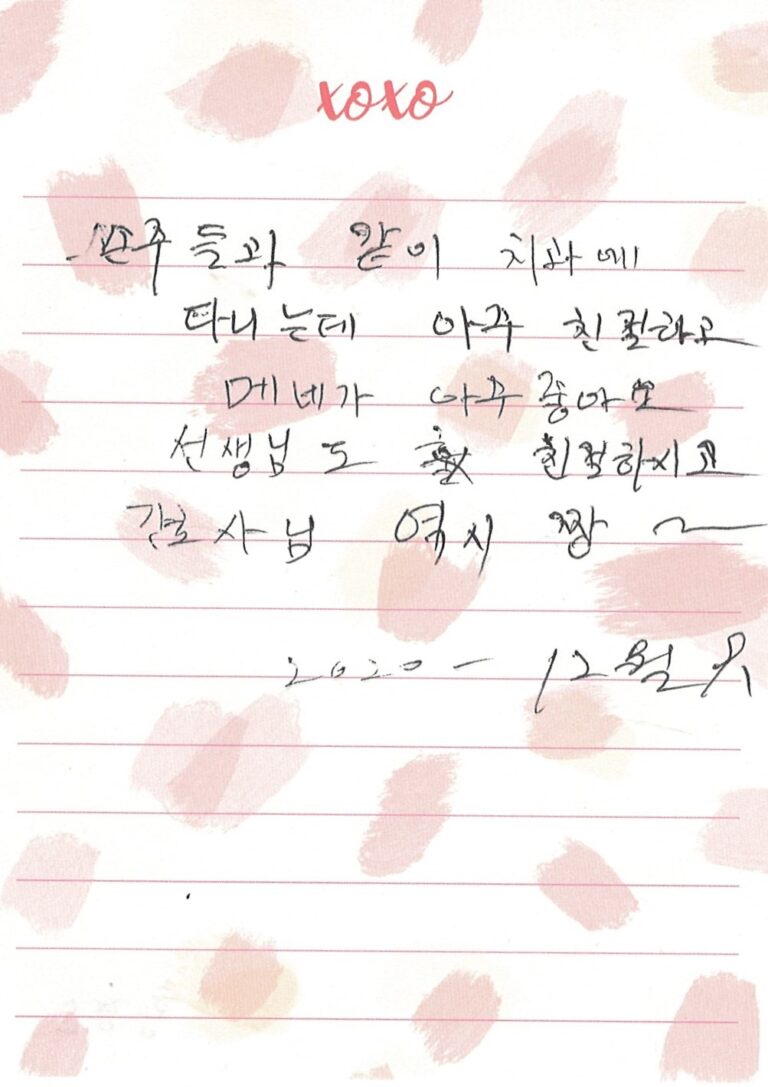 xoxo
손주들과 같이 치과에
다니는데 아주 친절하고
메네가 아주 좋아요
선생님도 친절하시고
간호사님 역시 짱 ~
2020 - 12월